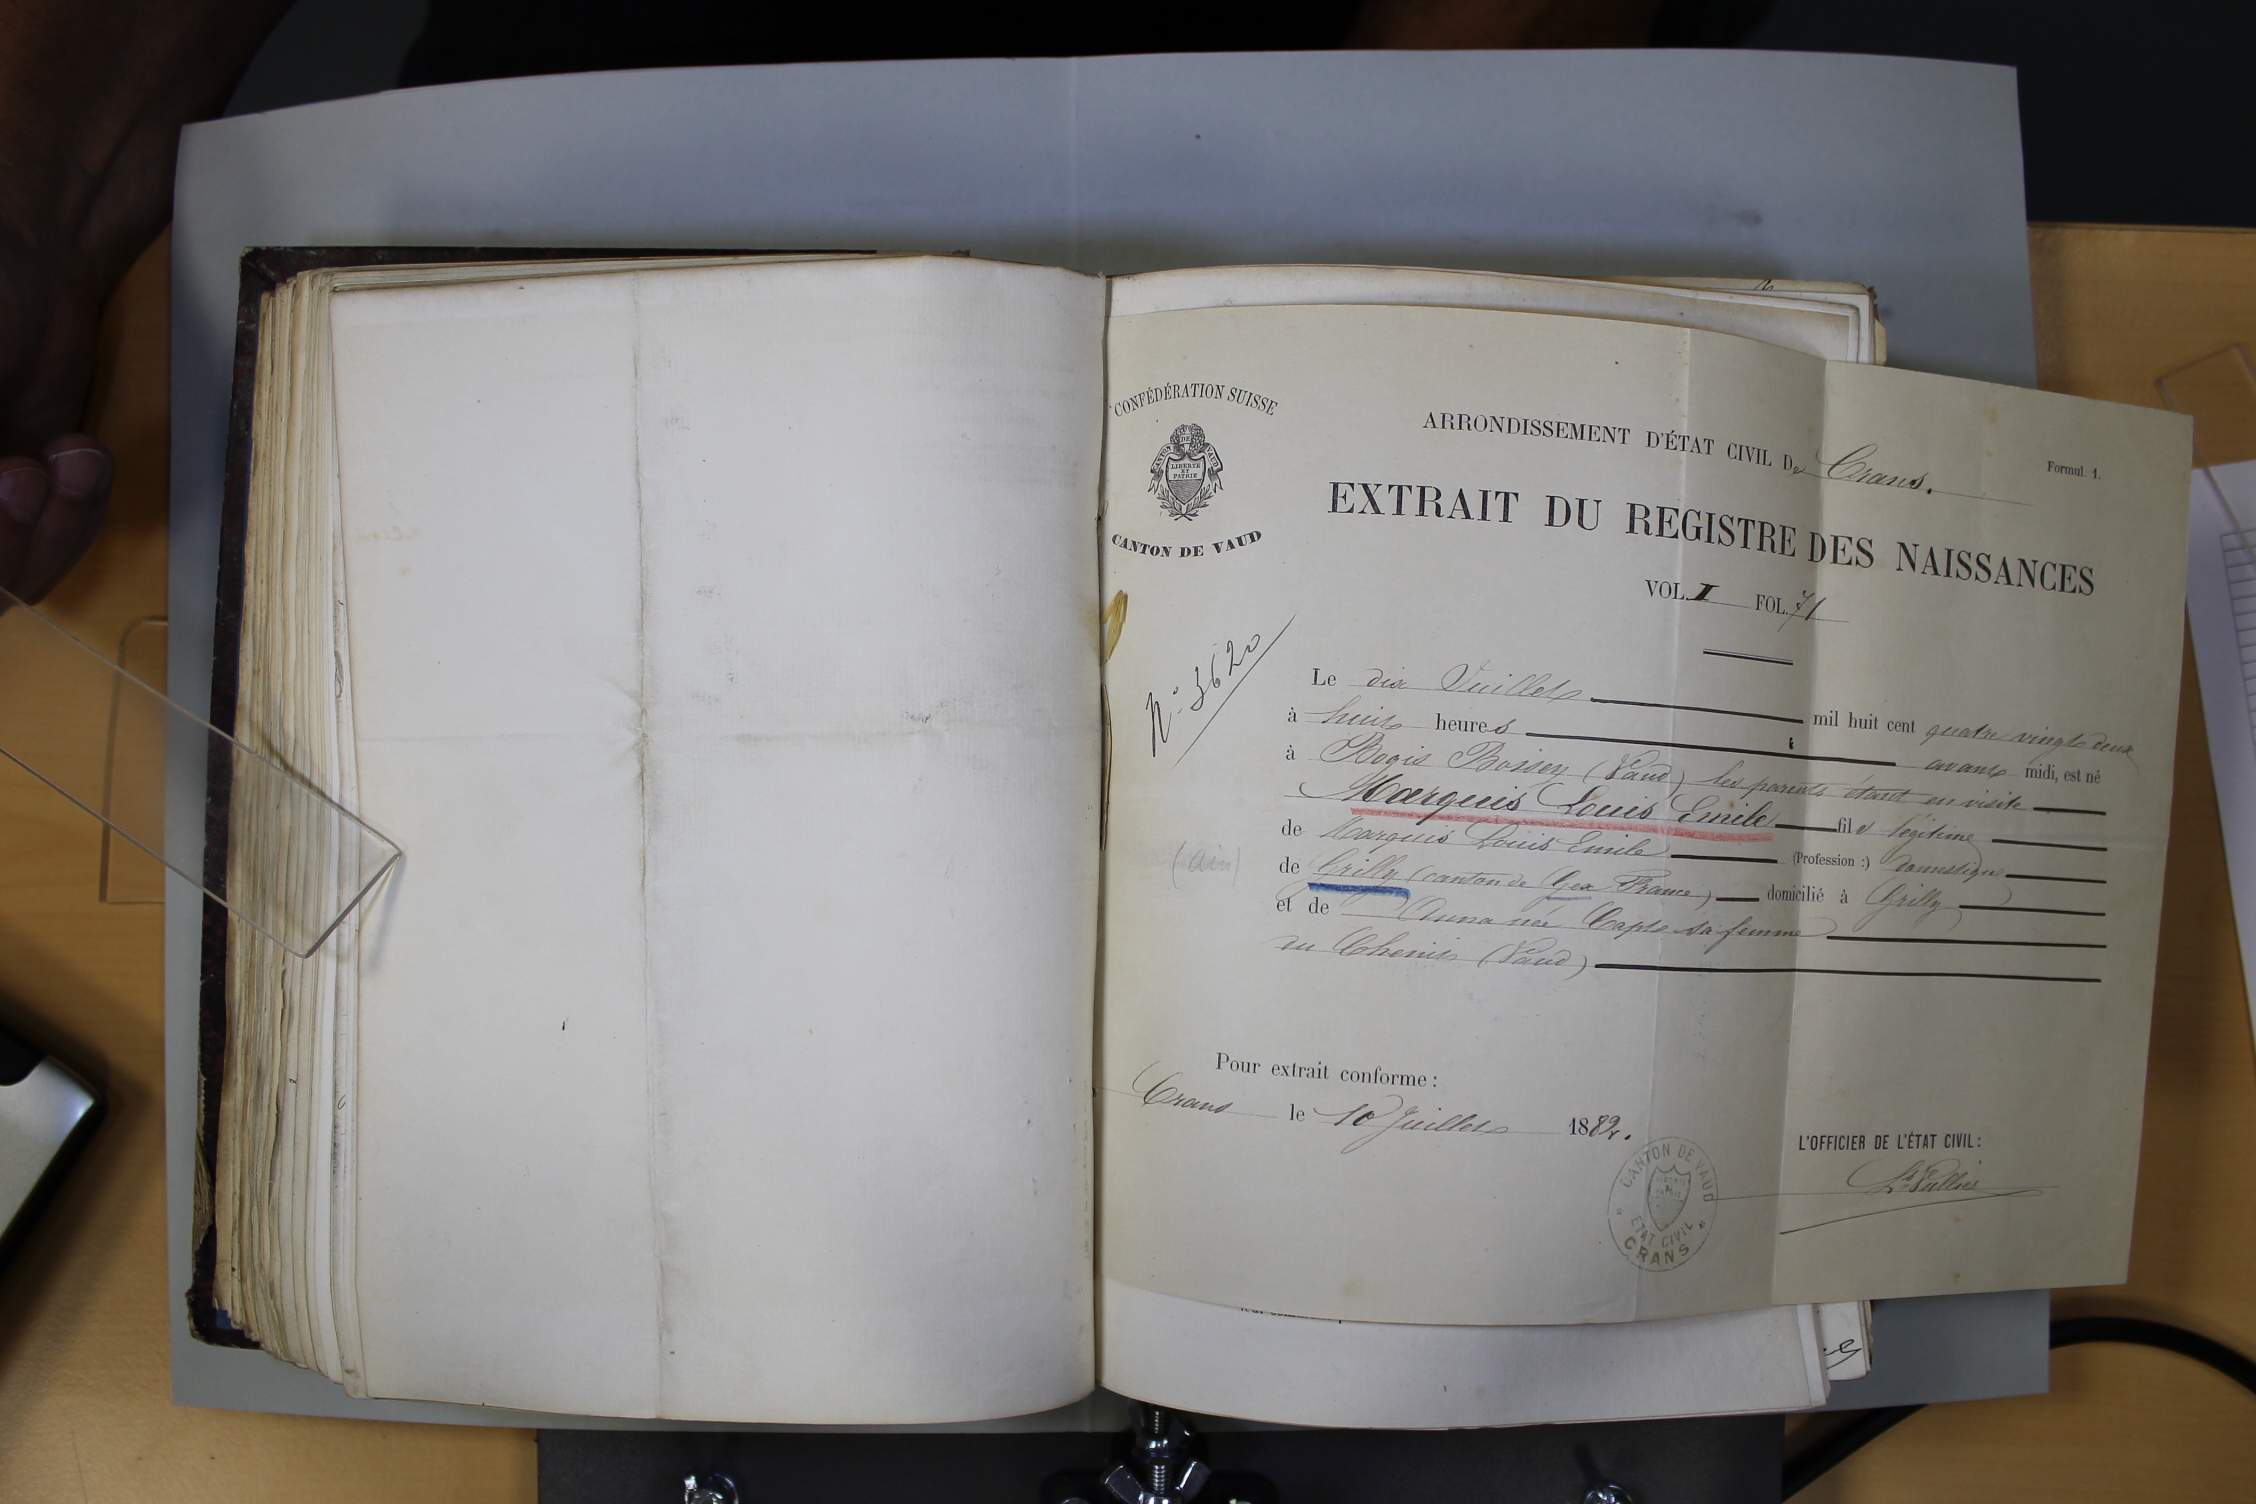 CONFÉDÉRATION SUISSE
CANTON DE VAUD
LIBERTÉ
ET
PATRIE
CANTON DE VAUD
ARRONDISSEMENT D'ÉTAT CIVIL De Crans.
Formul. 1.
EXTRAIT DU REGISTRE DES NAISSANCES
VOL. I FOL. 71
N° 3620
Le dix Juillet mil huit cent quatre vingt deux
à huit heures avant midi, est né
à Bogis Bossey (Vaud) les parents étant en visite
Marquis Louis Emile fils légitime
de Marquis Louis Emile (Profession :) Domestique
(Ain)
de Grilly (canton de Gex France) domicilié à Grilly
et de Anna née Capt sa femme
du Chenit (Vaud)
Pour extrait conforme :
Crans le 10 Juillet 1882.
L'OFFICIER DE L'ÉTAT CIVIL :
CANTON DE VAUD
ETAT CIVIL
CRANS